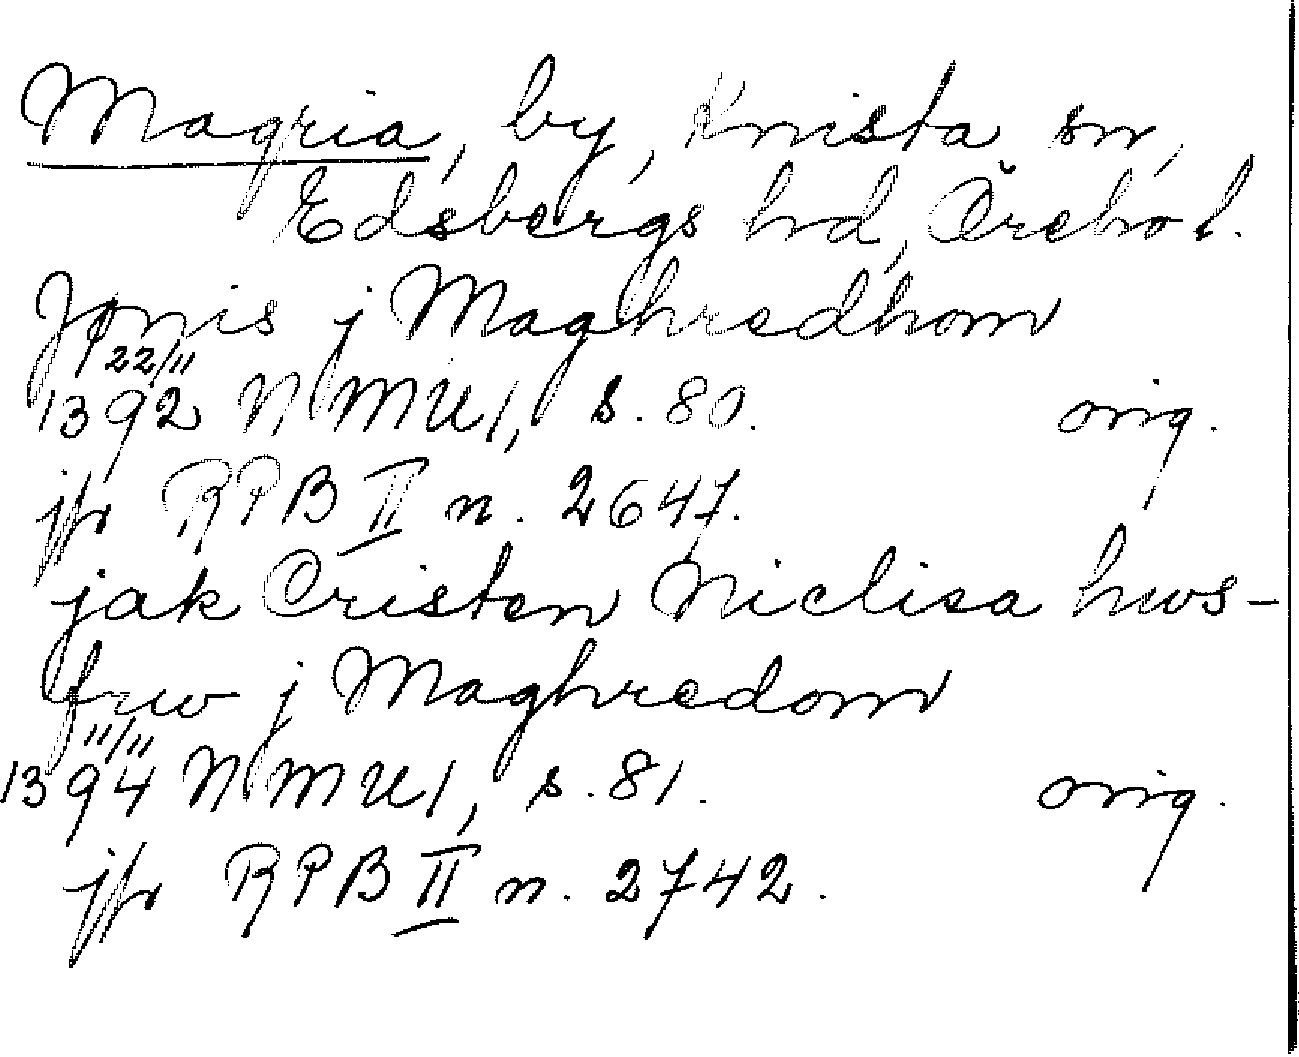 Magria, by, Knista sn,
Edsbergs hd, Örebro l.
Jønis j Maghredhom
22/11
1392 NMU 1, s. 80. orig.
jfr RPB II n. 2647.
jak Cristen Niclisa hws-
frw j Maghredom
11/11
1394 NMU 1, s. 81. orig.
jfr RPB II n. 2742.